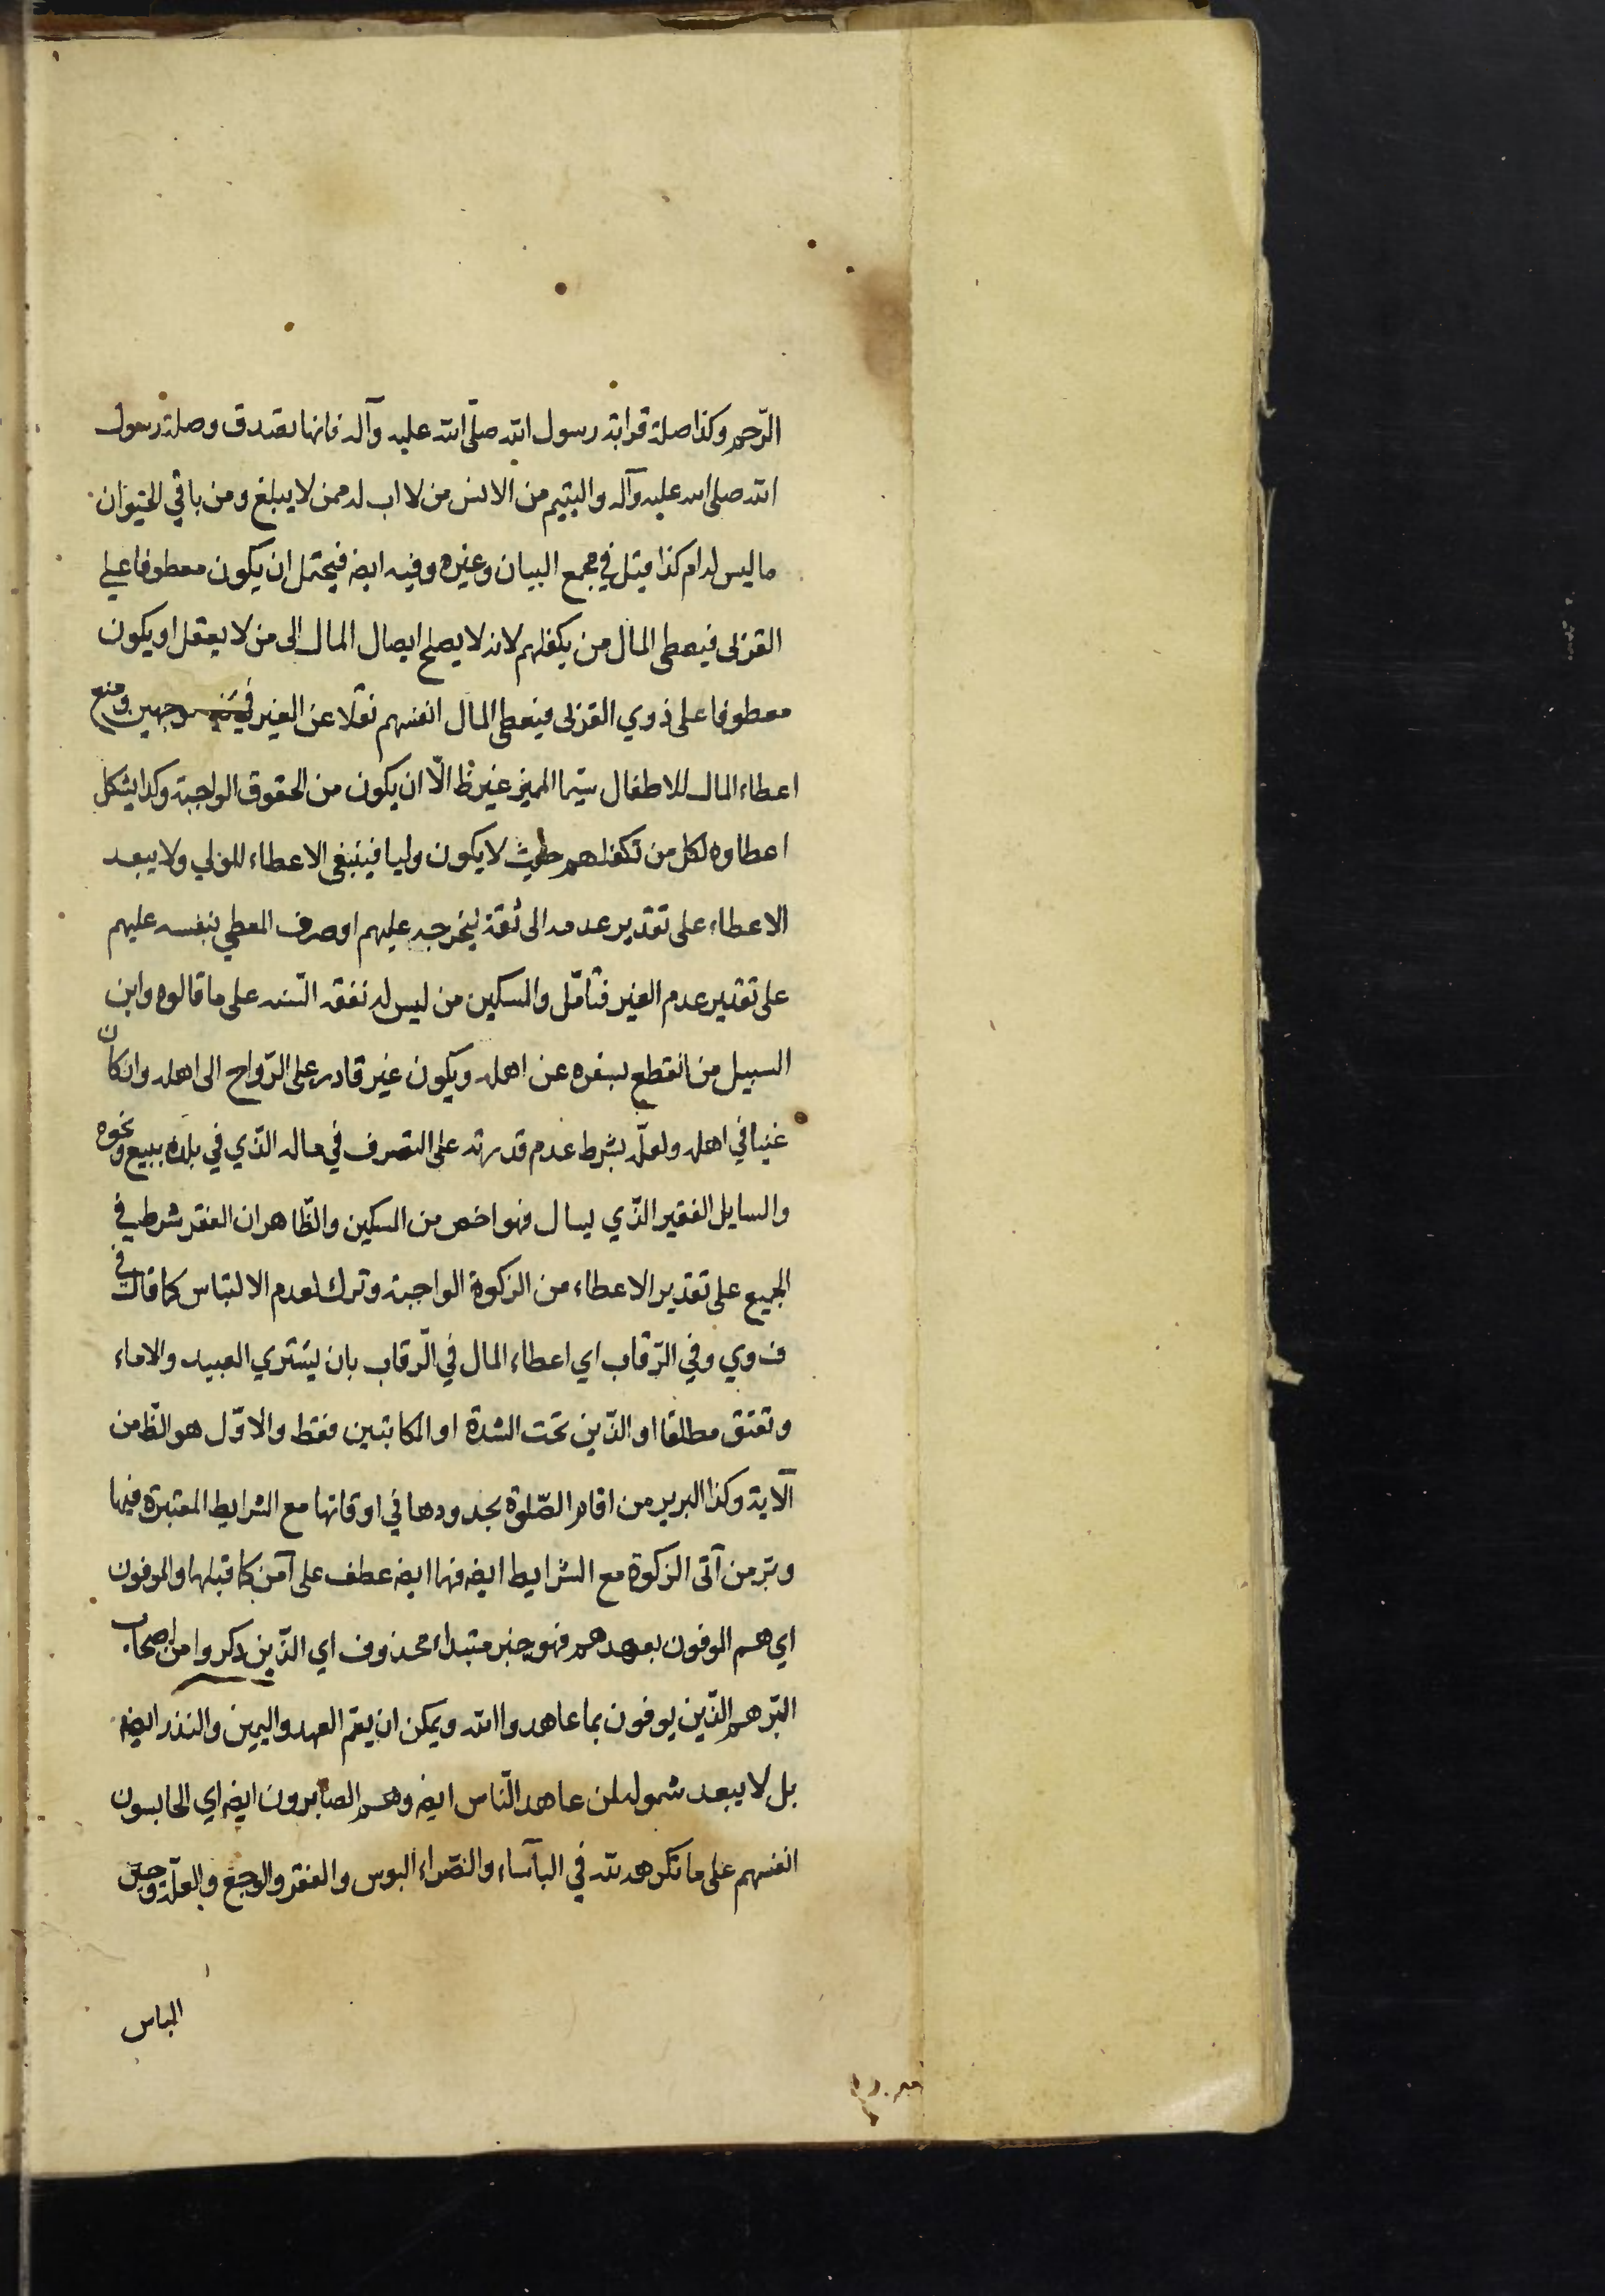 الرّحم وكذا صلة قرابة رسول الله صلّى الله عليه وآله فانها تصدق وصلة رسول
الله صلى الله عليه وآله واليتيم من الانس من لا اب له ممن لا يبلغ ومن باقي الحيوان
ما ليس له ام كذا قيل في مجمع البيان وغيره وفيه ايضه فيحتمل ان يكون معطوفا على
القربى فيعطى المال من يكفلهم لانه لا يصلح ايصال المال الى من لا يعقل او يكون
معطوفا على ذوي القربى فيعطى المال انفسهم نقلا عن الغير في وجهين ومنع
اعطاء المال للاطفال سيّما المميز غير ظ الّا ان يكون من الحقوق الواجبة وكذا يشكل
اعطاوه لكل من تكفلهم حيث لا يكون وليا فينبغى الاعطاء للولي ولا يبعد
الاعطاء على تقدير عدمه الى ثقة ليخرجه عليهم او صرف المعطي بنفسه عليهم
على تقدير عدم الغير فتأمّل والمسكين من ليس له نفقه السّنه على ما قالوه وابن
السبيل من انقطع بسفره عن اهله ويكون غير قادر على الرّواح الى اهله وان كان
غنيا في اهله ولعلّه بشرط عدم قدرته على التصرف في ماله الذّي في بلده ببيع ونحوه
والسايل الفقير الذّي يسال فهو اخص من المسكين والظّاهر ان الفقر شرط في
الجميع على تقدير الاعطاء من الزكوة الواجبة وترك لعدم الالتباس كما قال في
ف وي وفي الرّقاب اي اعطاء المال في الرّقاب بان يشترى العبيد والاماء
وتعتق مطلقا او الذّين تحت الشدة او المكاتبين فقط والاوّل هو الظ من
الآية وكذا البر بر من اقام الصّلوة بحدودها في اوقاتها مع الشرايط المعتبرة فيها
وبرّ من آتى الزكوة مع الشرايط ايضه فهما ايضه عطف على آمن كما قبلها والموفون
اي هم الموفون بعهدهم فهو خبر مبتداء محذوف اي الذّين ذكروا من اصحاب
البّر هم الذّين يوفون بما عاهدوا الله ويمكن ان يعم العهد واليمين والنذر ايضه
بل لا يبعد شموله لمن عاهد النّاس ايضه وهم الصابرون ايضه اي الحابسون
انفسهم على ما تكرهه لله في البآساء والضّراء البوس والفقر والوجع والعلّة وحين
الباس